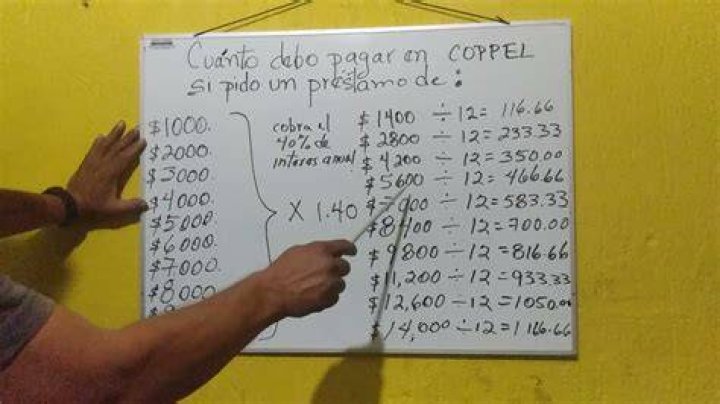 Cuánto debo pagar en COPPEL
si pido un préstamo de:
$1000.
$2000.
$3000.
$4000.
$5000.
$6000.
$7000.
$8000
cobra el
40% de
interes anual
X 1.40
$1400 ÷ 12 = 116.66
$2800 ÷ 12 = 233.33
$4200 ÷ 12 = 350.00
$5600 ÷ 12 = 466.66
÷ 12 = 583.33
$8400 ÷ 12 = 700.00
$9800 ÷ 12 = 816.66
$11,200 ÷ 12 = 933.33
$12,600 ÷ 12 = 1050.00
$14,000 ÷ 12 = 1166.66